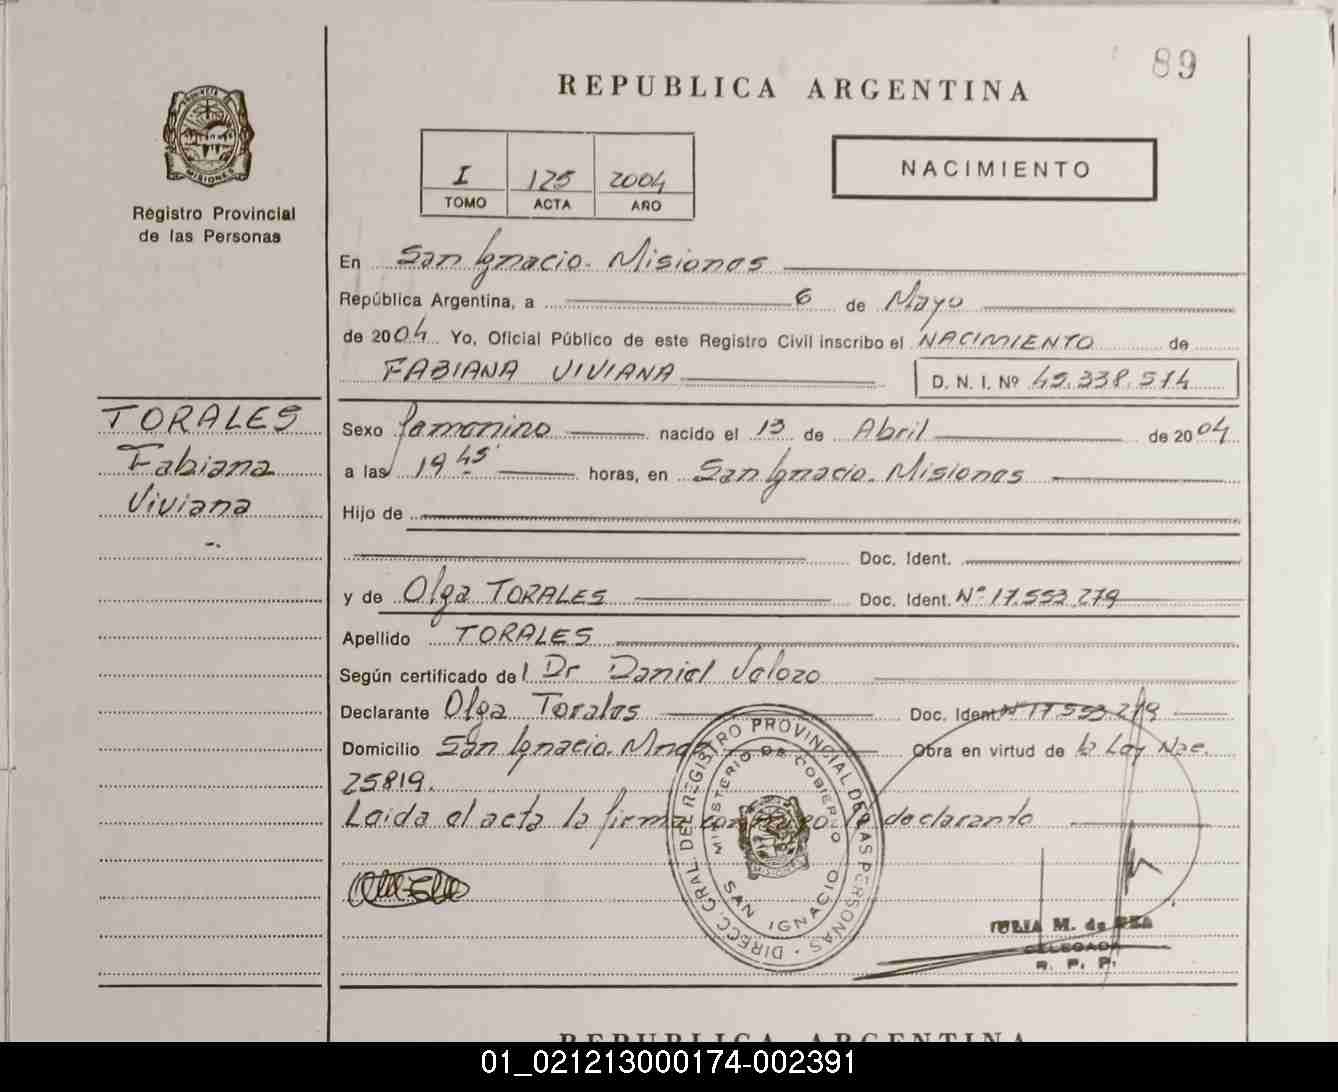 89
REPUBLICA ARGENTINA
PROVINCIA
MISIONES
Registro Provincial
de las Personas
I 125 2004
TOMO ACTA AÑO
NACIMIENTO
En San Ignacio. Misiones
República Argentina, a 6 de Mayo
de 2004 Yo, Oficial Público de este Registro Civil inscribo el NACIMIENTO de
FABIANA VIVIANA D. N. I. Nº 45.338.514
TORALES
Fabiana
Viviana
-.
Sexo femenino nacido el 13 de Abril de 2004
a las 19 45 horas, en San Ignacio. Misiones
Hijo de
Doc. Ident.
y de Olga TORALES Doc. Ident. Nº 17.553.279
Apellido TORALES
Según certificado de l Dr Daniel Velozo
Declarante Olga Torales Doc. Ident. Nº 17.553.279
Domicilio San Ignacio. Mnes Obra en virtud de la Ley Nac.
25819.
Leida el acta la firma conmigo la declarante
DIRECC. GRAL. DEL REGISTRO PROVINCIAL DE LAS PERSONAS
MINISTERIO DE GOBIERNO
MISIONES
SAN IGNACIO
JULIA M. de
DELEGADA
R. P. P.
REPUBLICA ARGENTINA
01_021213000174-002391